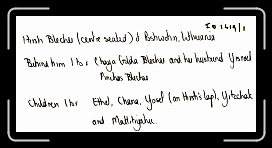 Hirsh Blecher (centre seated) of Lithuania
Behind him l to r Chaya Golda Blecher and her husband Yisroel
Pinchas Blecher
Children l to r Ethel, Chana, Yosef (on Hirsh's lap), Yitzchak
and Mattityahu.